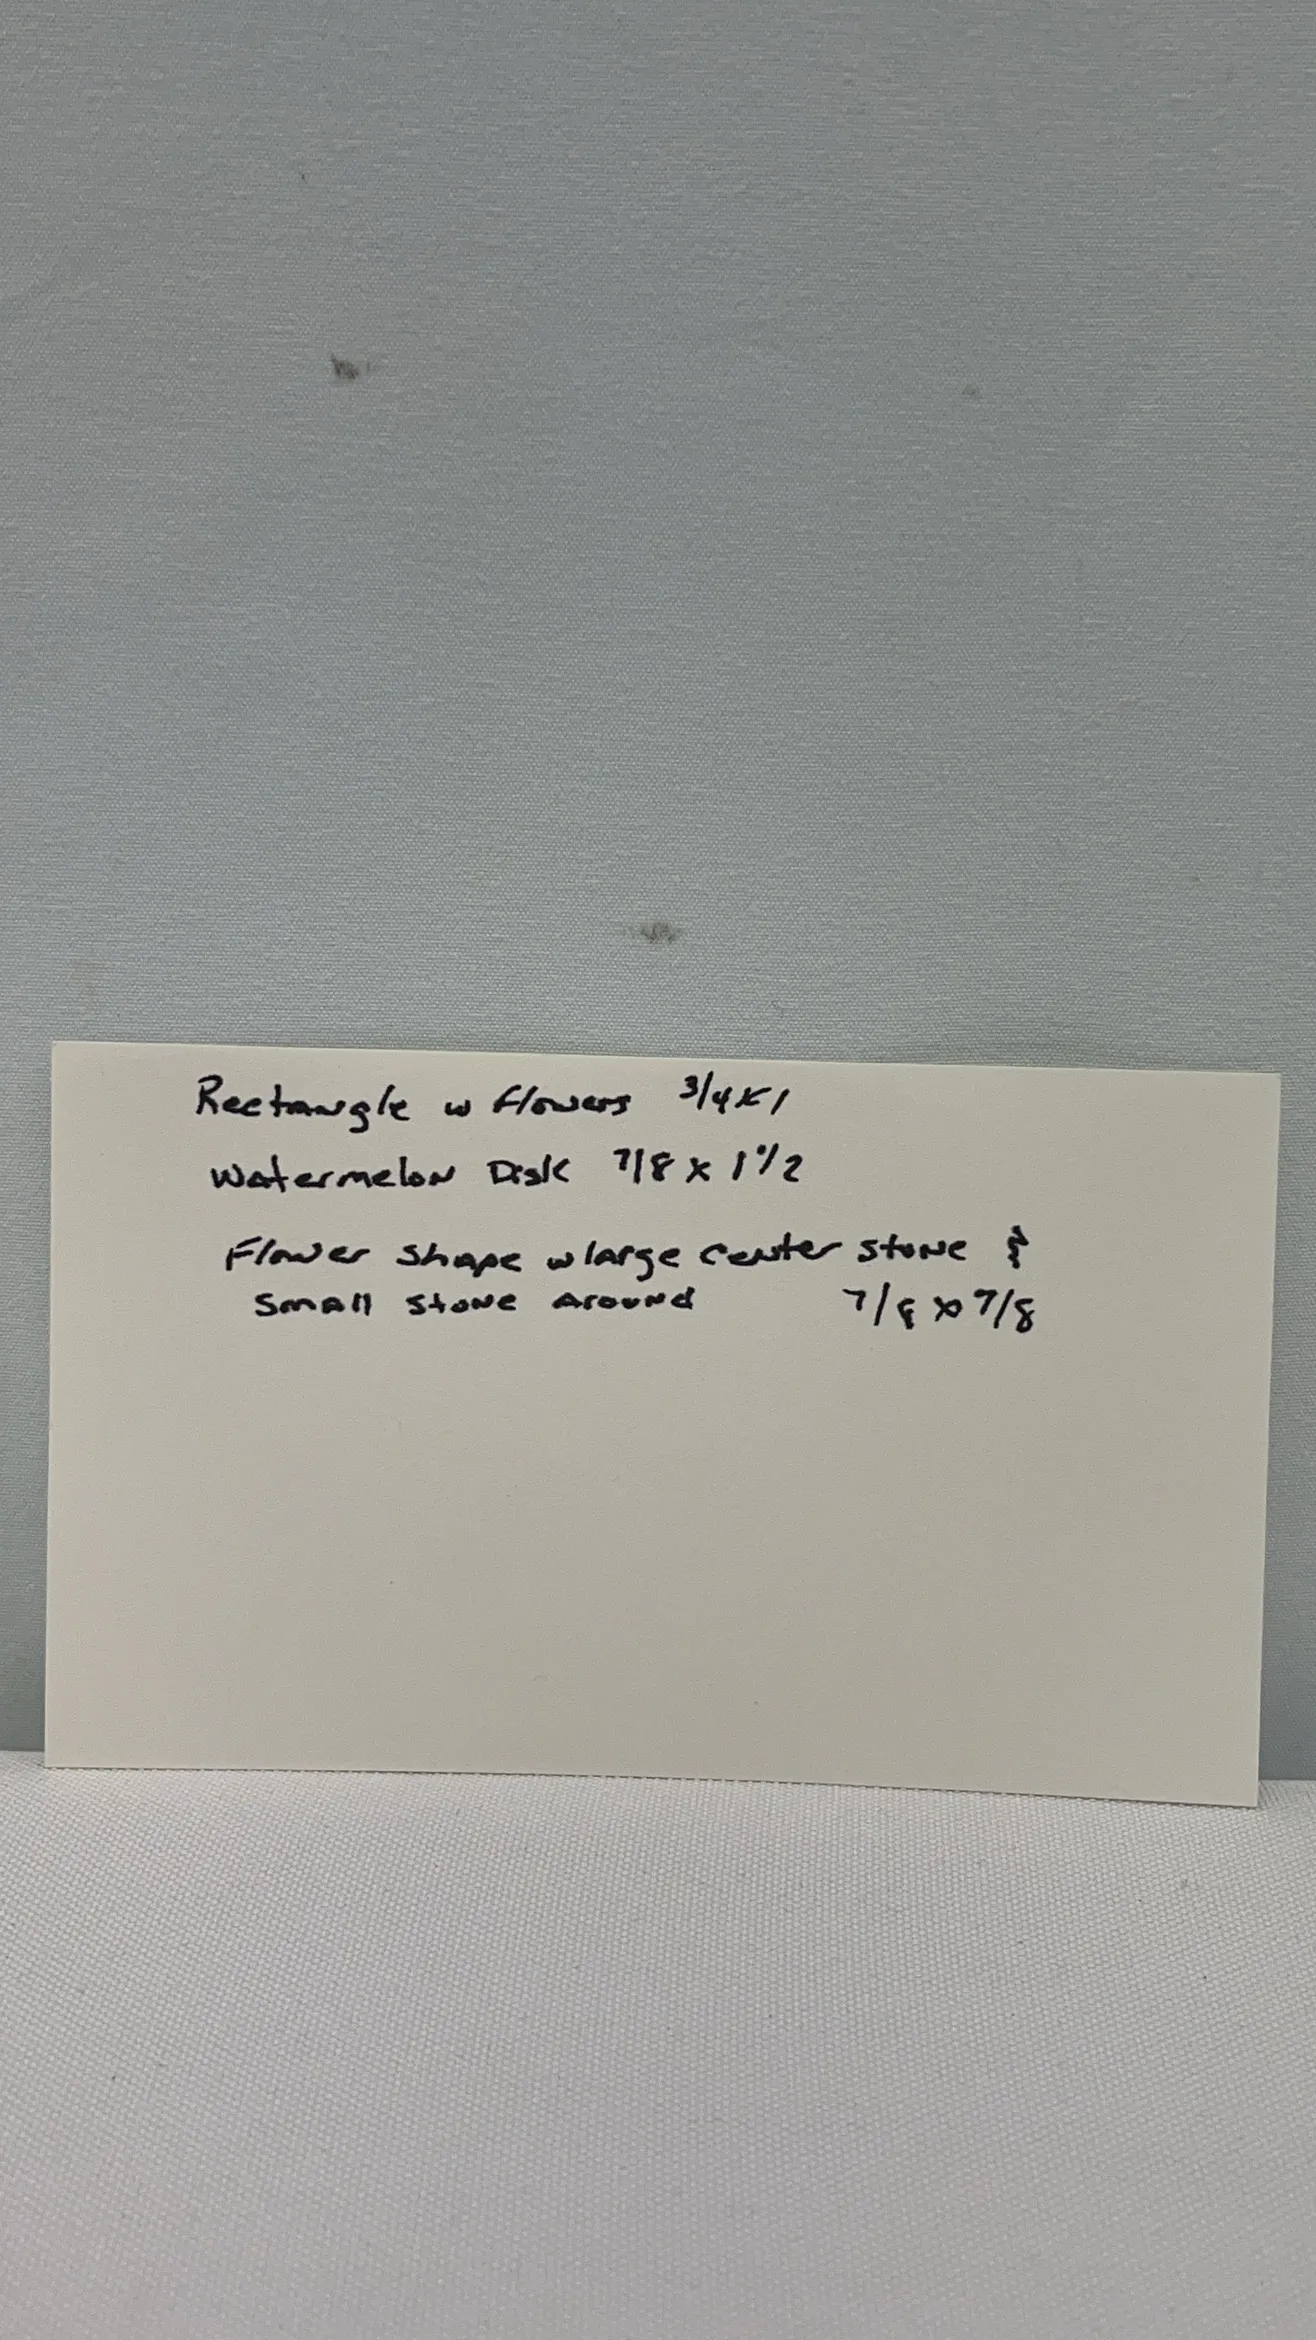 Rectangle w flowers 3/4 x 1
Watermelon Disk 7/8 x 1 1/2
Flower shape w large center stone &
small stone around 7/8 x 7/8